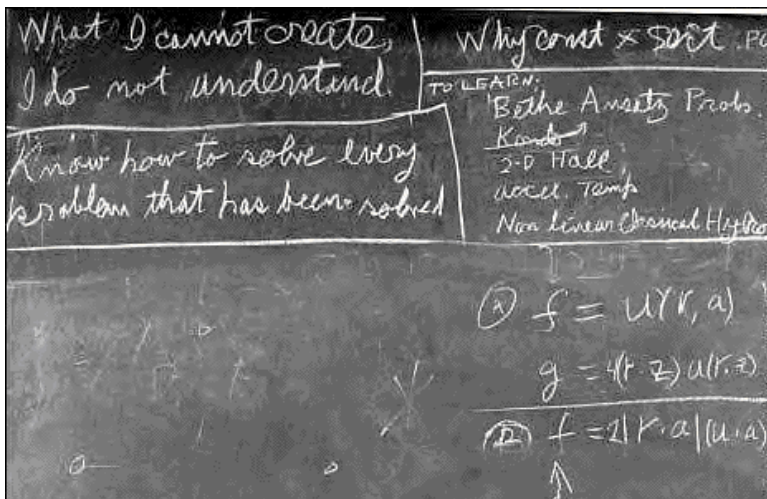 What I cannot create,
I do not understand.
Know how to solve every
problem that has been solved
Why const × sort . PO
TO LEARN.
Bethe Ansatz Probs.
Kondo
2-D Hall
accel. Temp
Non linear Classical Hydro
f = U(r, a)
g = 4(r·z) u(r,z)
f = 2|r·a|(u·a)